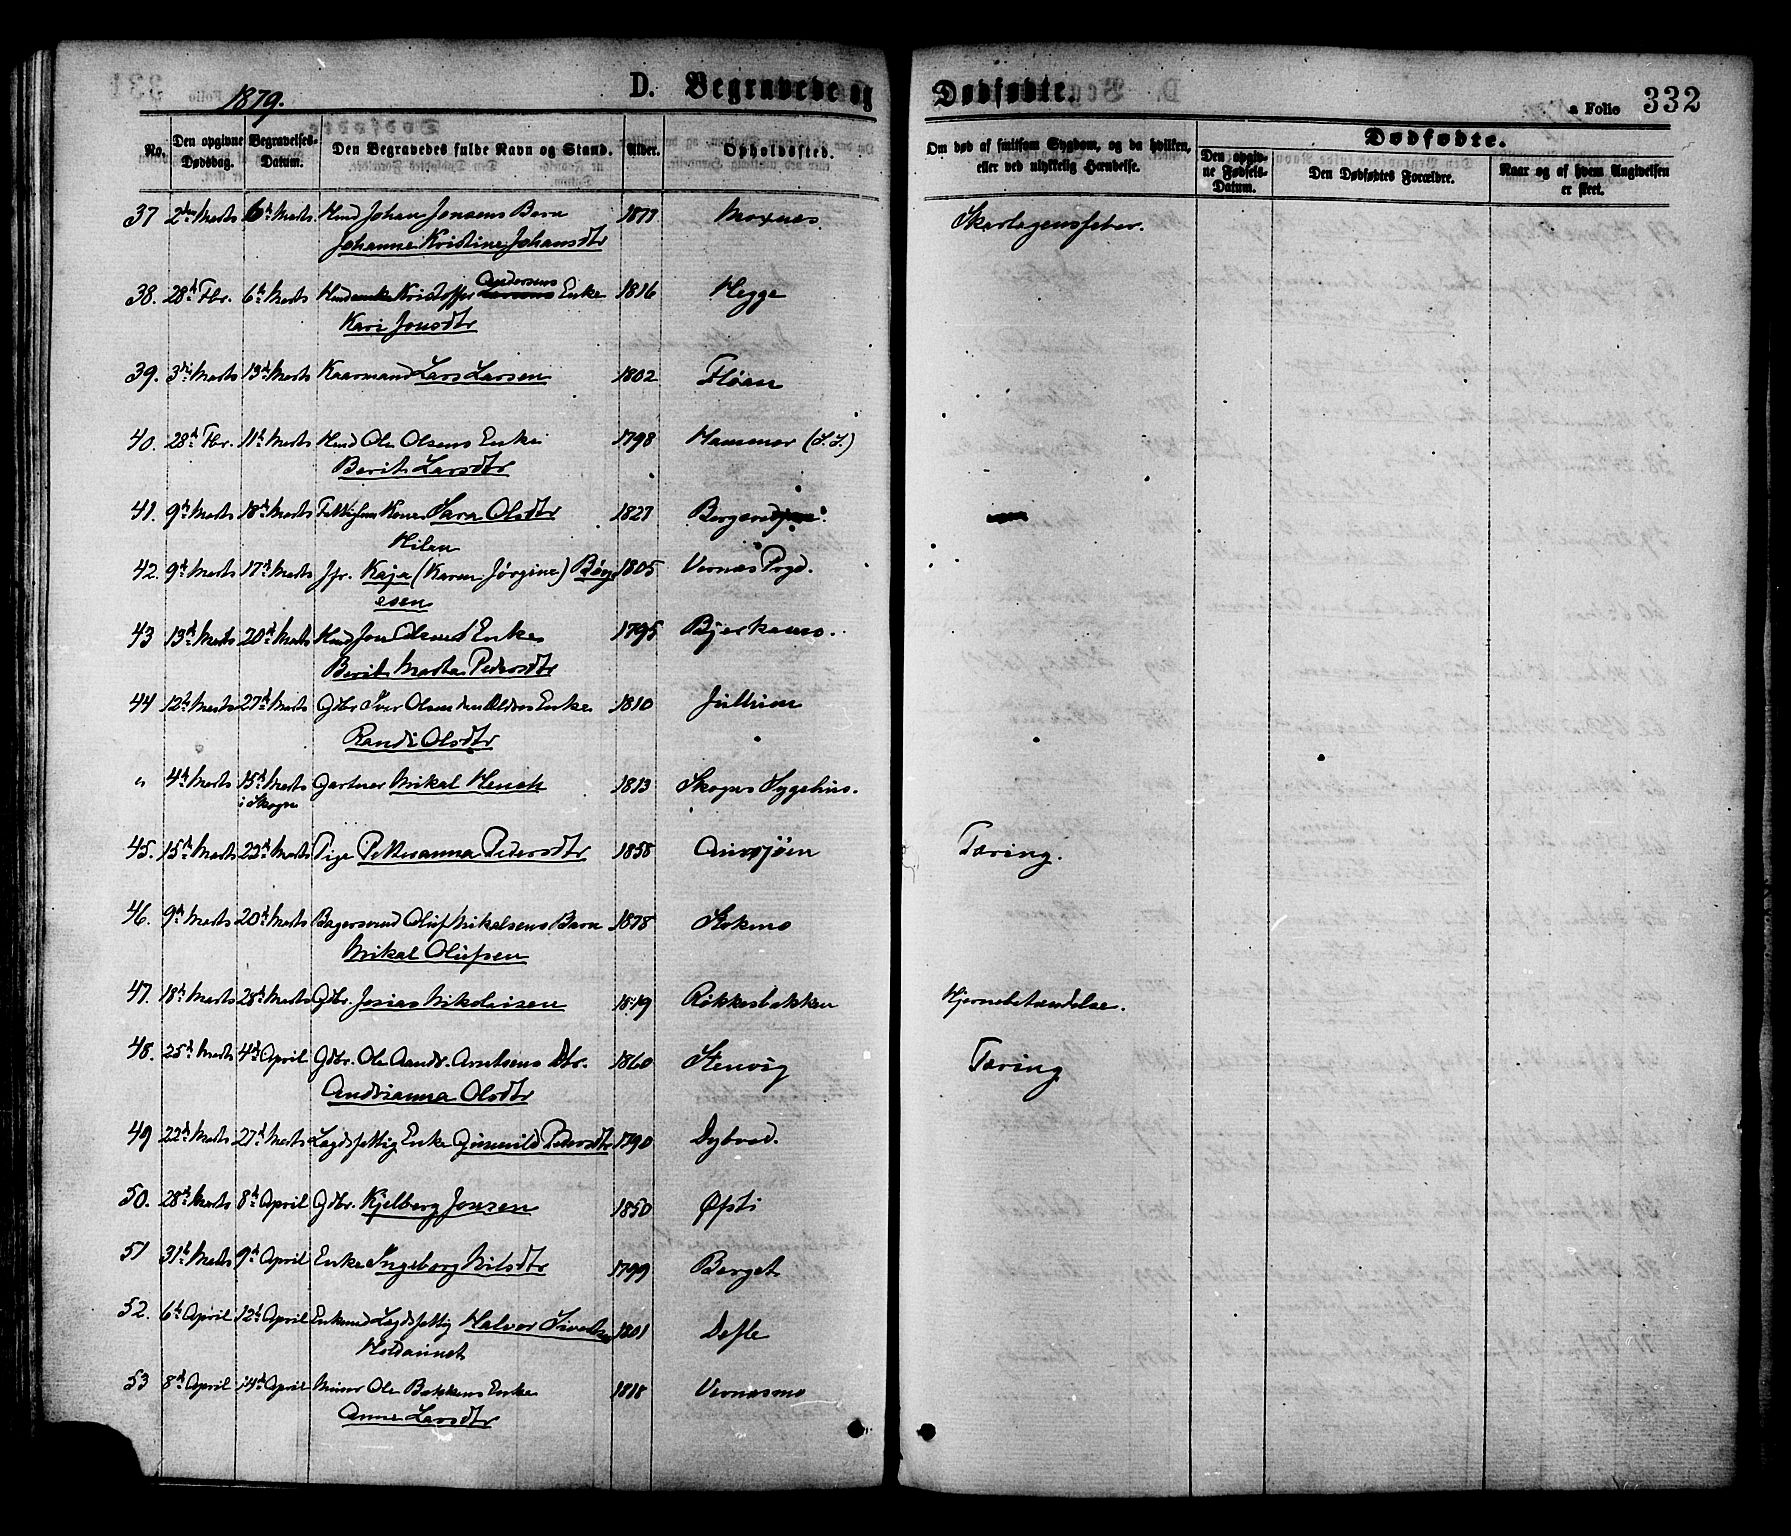 1879.
D. Begravede og Dødfødte.
a Folio 332
No.
Den opgivne Dødsdag.
Begravelses-Datum.
Den Begravedes fulde Navn og Stand.
Alder.
Opholdssted.
Om død af smitsom Sygdom, og da hvilken, eller ved ulykkelig Hændelse.
Dødfødte.
Den opgivne Fødsels-Datum.
Den Dødfødtes Forældre.
Naar og af hvem Angivelsen er skeet.
37 2den Marts 6te Marts Hmd Johan Jonsens Barn 1877 Moxnes. Skarlagensfeber.
Johanne Kristine Johansdtr
38. 28d Fbr. 6te Marts Kristoffer Andersens Enke 1816 Hegge
Kari Jonsdtr
39. 3die Marts 13d Marts Kaarmand Lars Larsen 1802 Fløan
40. 28d Fbr. 11te Marts Hmd Ole Olsens Enke 1798 Hammer (S.S.)
Berit Larsdtr
41. 9d Marts 18d Marts Kone Sara Olsdtr 1827
Milan
42. 9d Marts 17d Marts Jfr. Kaja (Karen Jørgine) Børg 1805 Vernes Prgd.
esen
43 13d Marts 20d Marts Hmd Jon Olsens Enke 1795 Bjerkanmo.
Berit Marta Pedersdtr
44 12te Marts 27d Marts Gdbr Iver Olsen den Ældres Enke 1810 Jullum
Randi Olsdtr
" 4d Marts 15d Marts Gartner Mikal Hench 1813 Skogns Sygehus.
i Skogn
45. 15d Marts 22d Marts Pige Petteranna Pedersdtr 1858 Arnsjøen Tæring.
46. 9d Marts 20d Marts Bagersvend Oluf Mikalsens Barn 1878 Stokmo
Mikal Olufsen
47. 18d Marts 28d Marts Gdbr. Josias Nikolaisen 1819 Røkkesbakken Hjernebetændelse.
48. 25d Marts 4d April Gdbr. Ole Andr. Arntsens Dtr. 1860 Stenvig Tæring
Andrianna Olsdtr
49 22d Marts 27d Marts Lægdsfattig Enke Gunnild Pedersdtr 1790 Dybvad.
50. 28d Marts 8d April Gdbr. Kjelberg Jonsen 1850 Øfsti
51 31te Marts 9d April Enke Ingeborg Nilsdtr 1799 Berget
52. 6te April 12te April Enkemd Lægdsfattig Halvor Sivertsen 1801 Defle
53 8d April 14d April Murer Ole Bakkens Enke 1818 Vernesmo
Anne Larsdtr